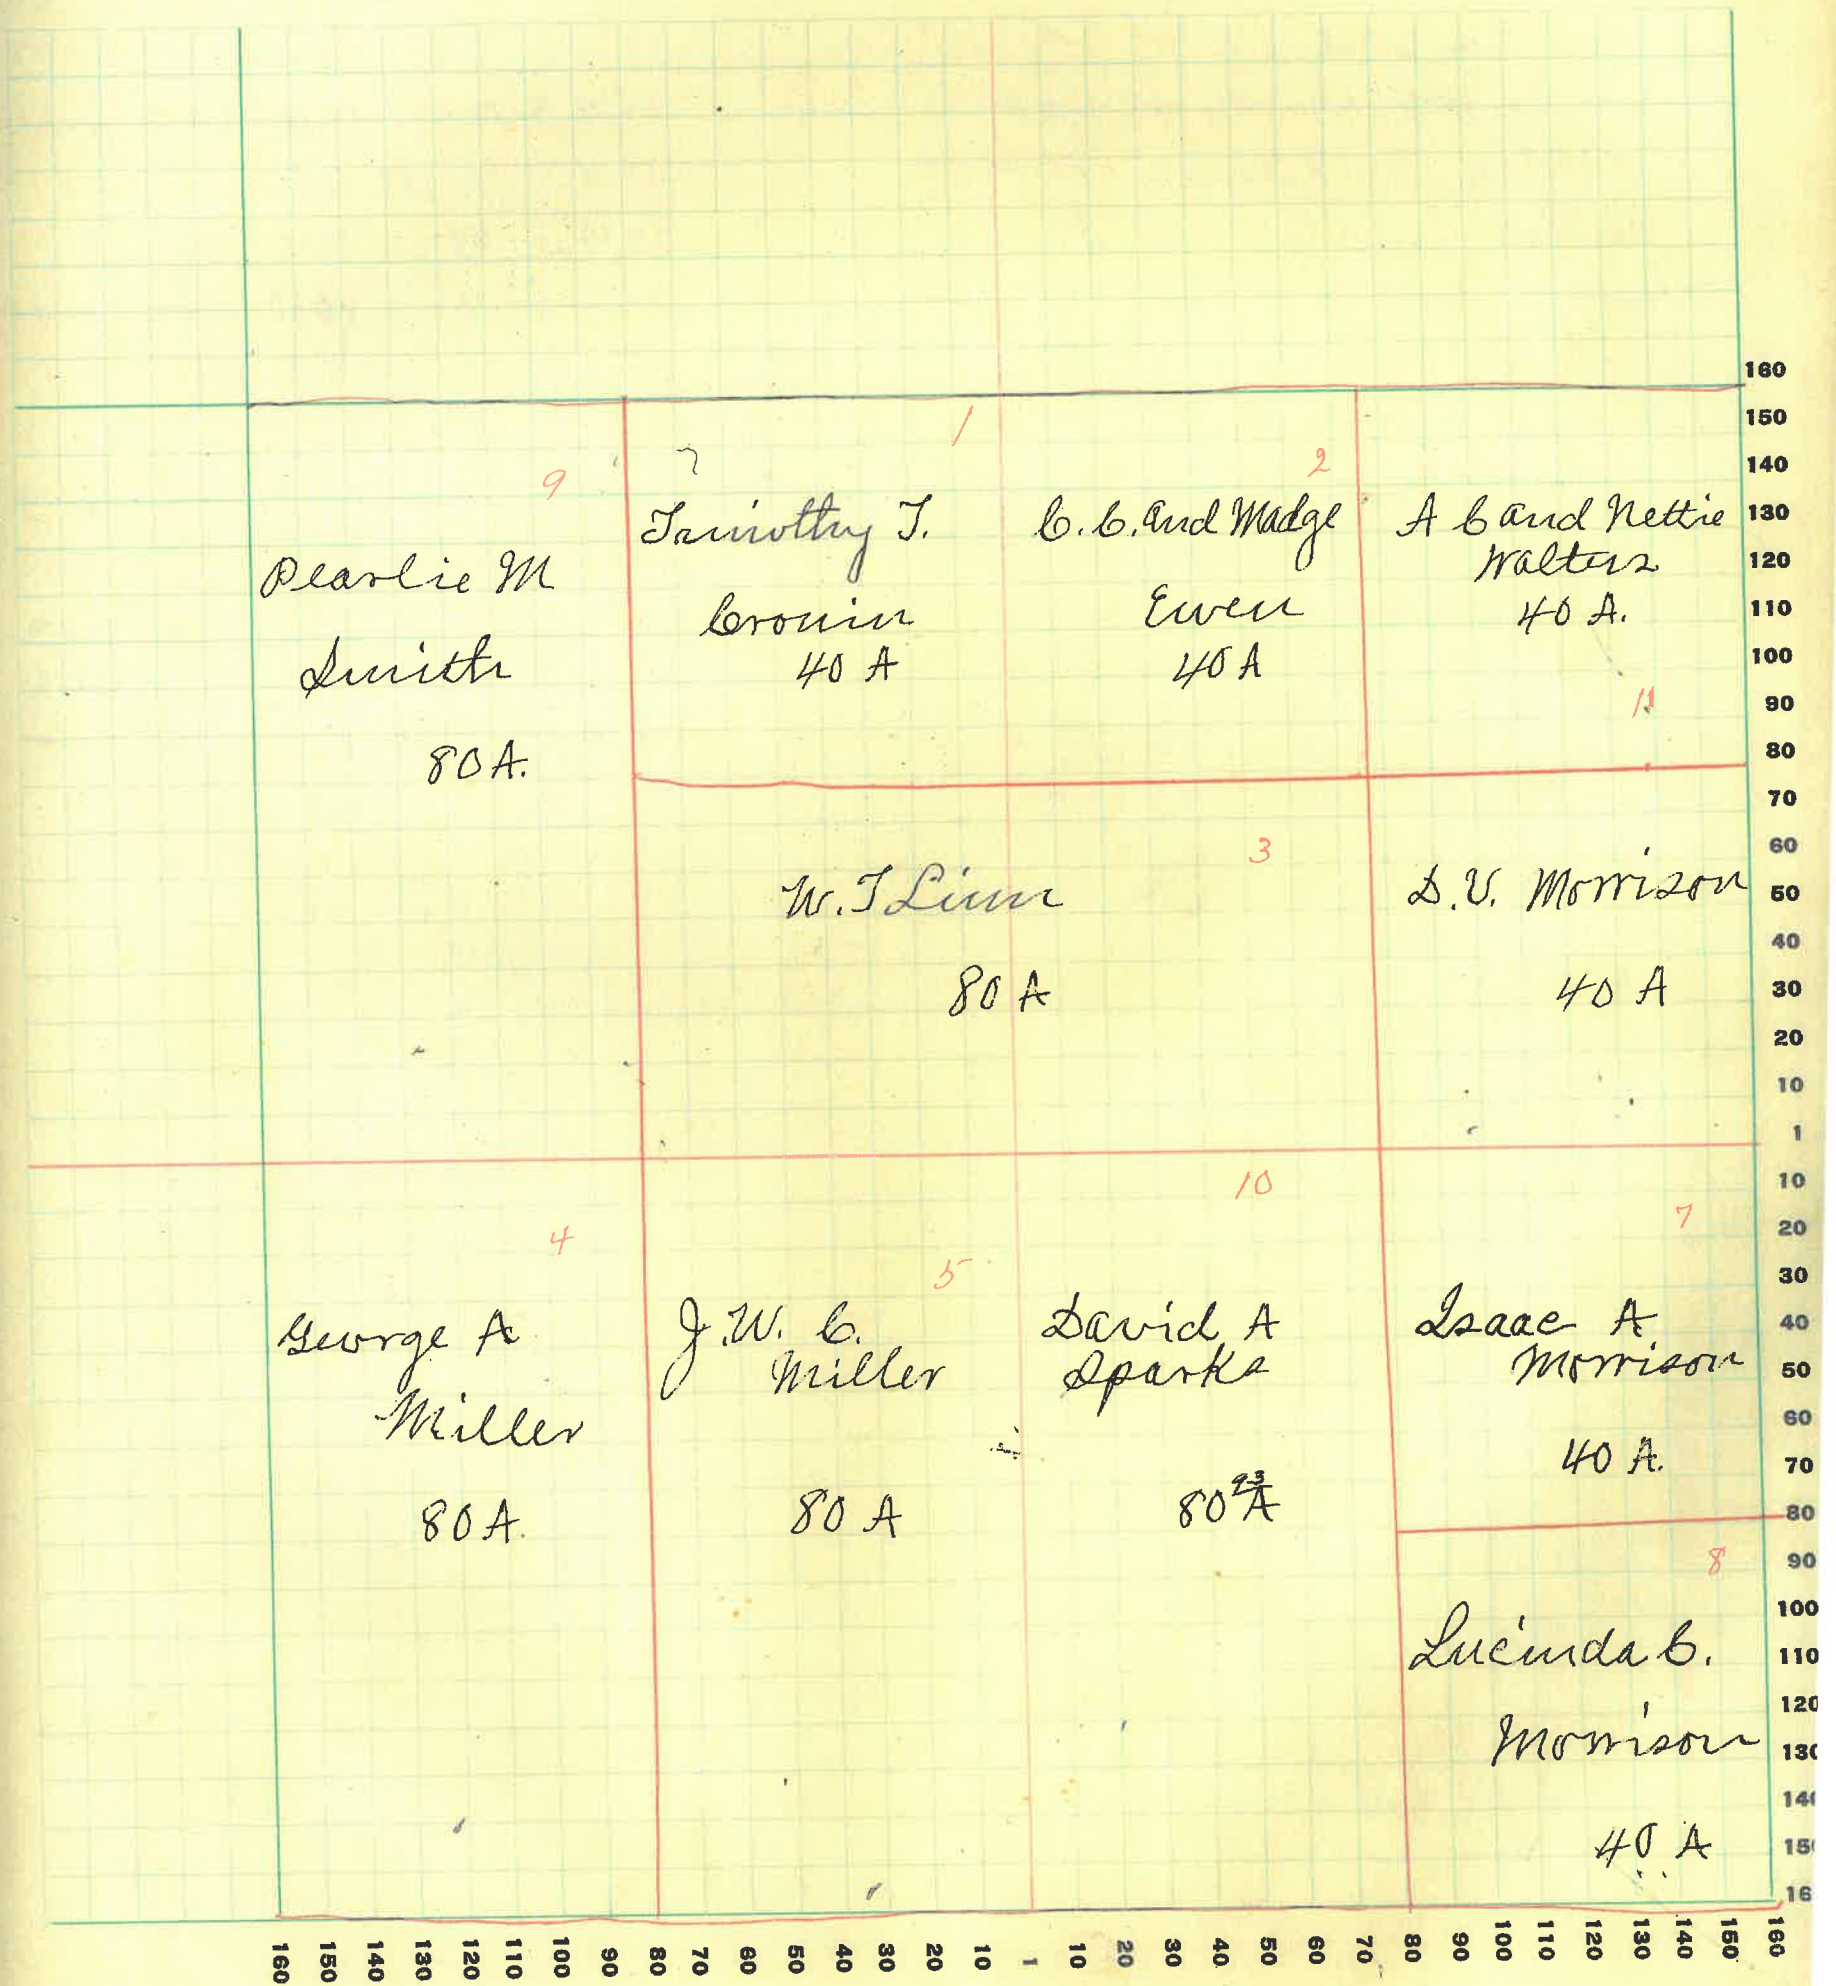 9
Pearlie M
Smith
80 A.
1
Timothy T.
Cronin
40 A
2
C. C. and Madge
Ewen
40 A
A C and Nettie
Walters
40 A.
11
3
W. T Linn
80 A
D. V. Morrison
40 A
4
George A
Miller
80 A.
5
J. W. C.
Miller
80 A
10
David A
Sparks
80 93 A
7
Isaac A.
Morrison
40 A.
8
Lucinda C.
Morrison
40 A
160
150
140
130
120
110
100
90
80
70
60
50
40
30
20
10
1
10
20
30
40
50
60
70
80
90
100
110
120
130
140
150
16
160 150 140 130 120 110 100 90 80 70 60 50 40 30 20 10 1 10 20 30 40 50 60 70 80 90 100 110 120 130 140 150 160